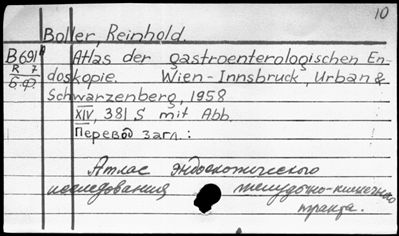 10
Boller, Reinhold.
B691 Atlas der gastroenterologischen En-
R 7 doskopie. Wien-Innsbruck, Urban &
б.ф. Schwarzenberg, 1958
XIV, 381 S mit Abb.
Перевод загл.:
Атлас эндоскопического
исследования желудочно-кишечного
тракта.